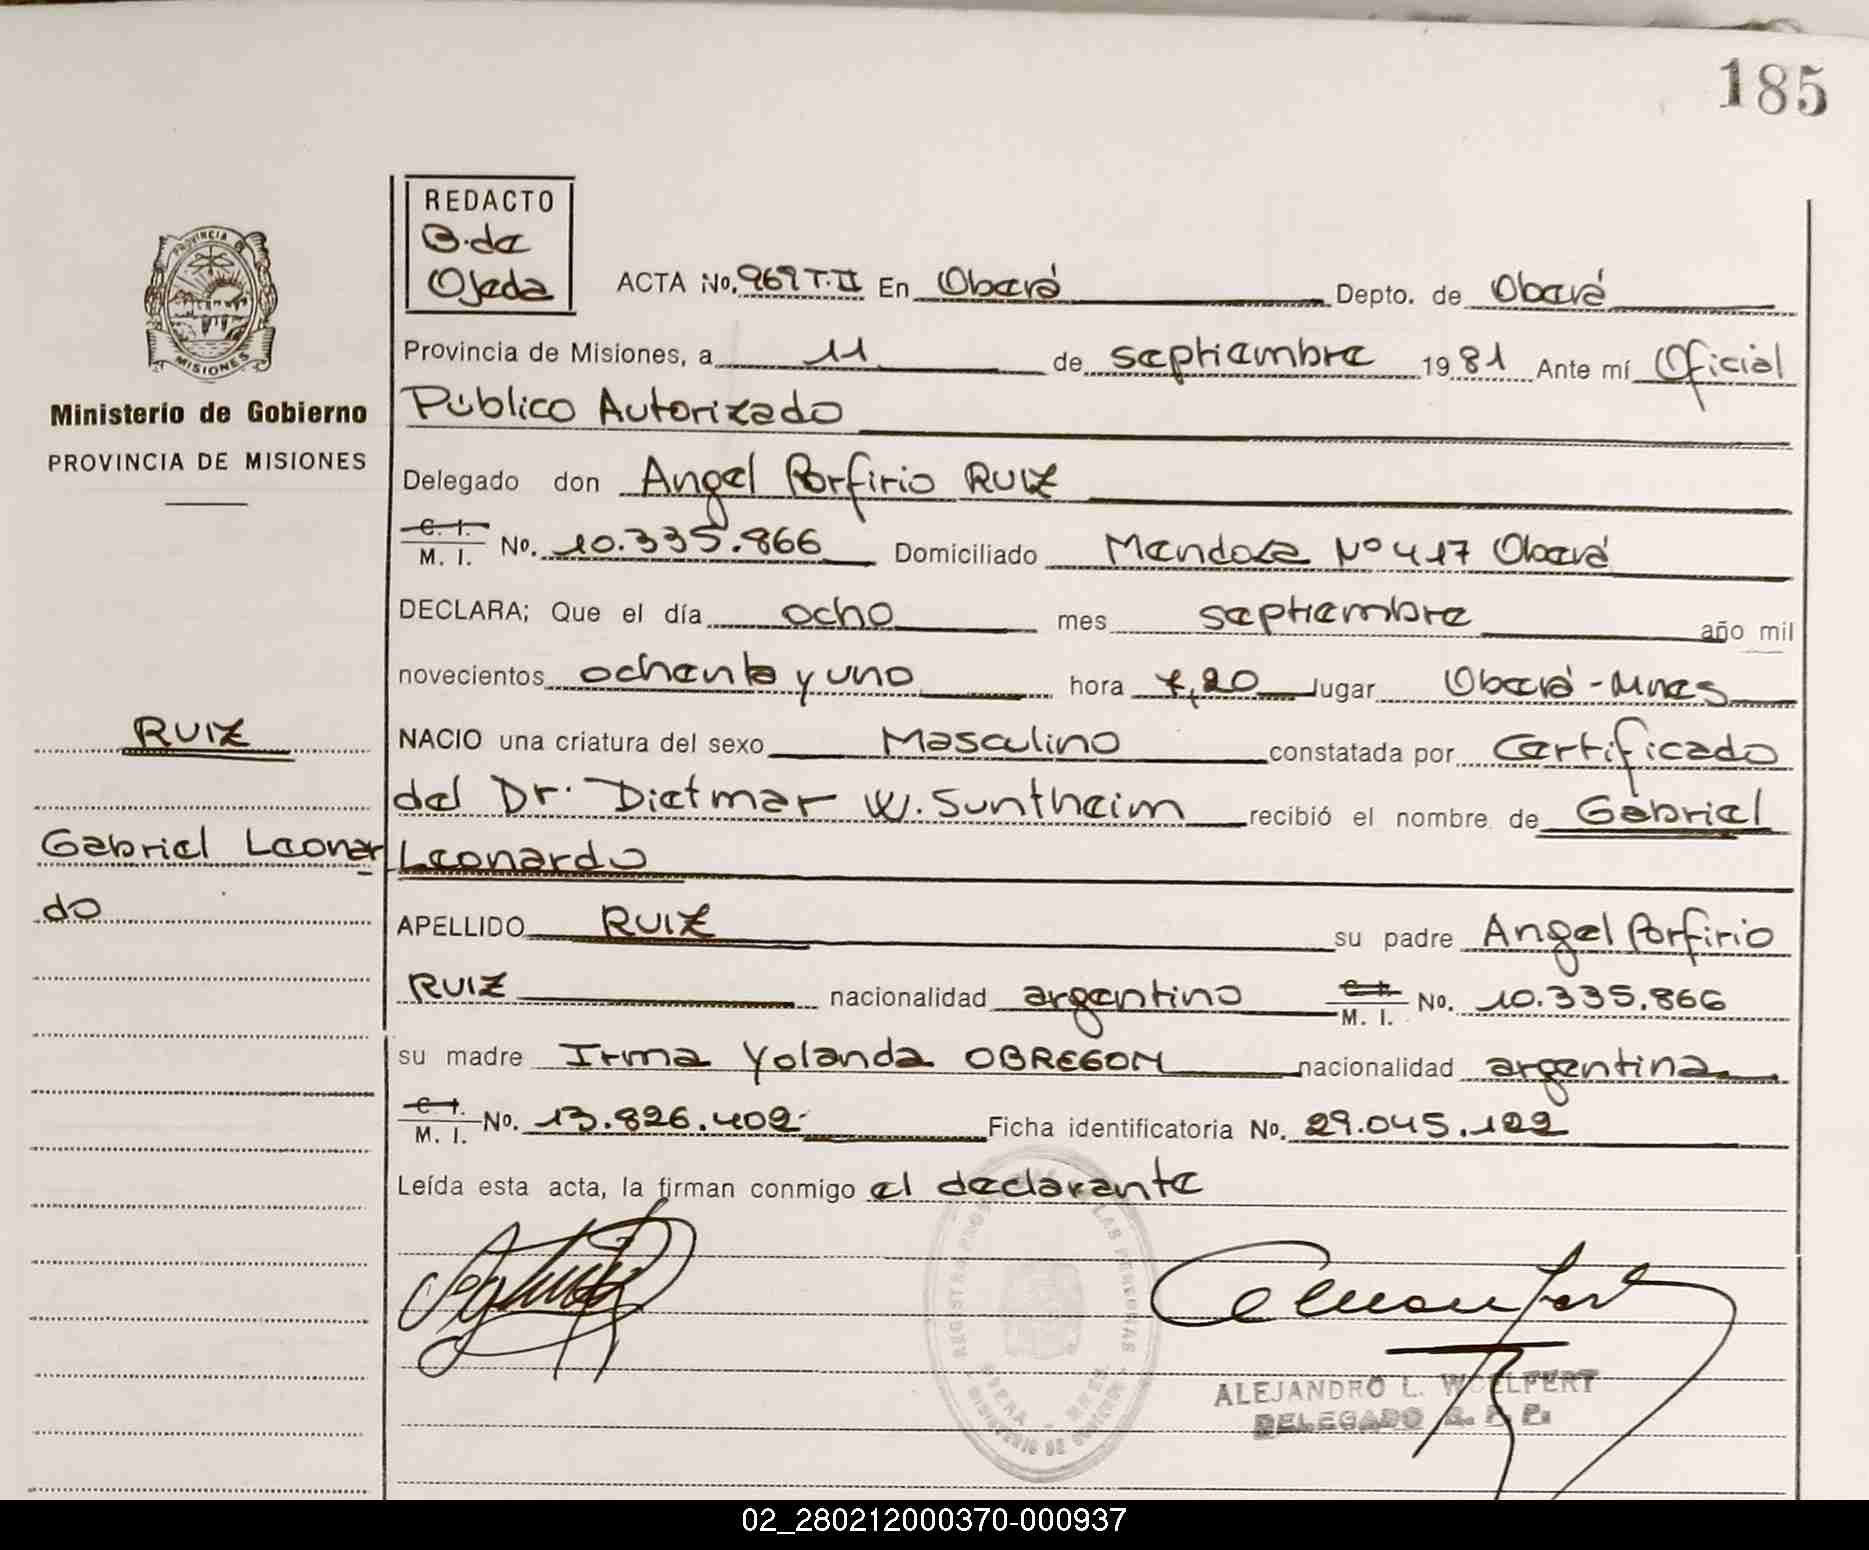 185
REDACTO
B. de
Ojeda
PROVINCIA D
MISIONES
ACTA No. 969 T. II En Oberá Depto. de Oberá
Provincia de Misiones, a 11 de septiembre 1981 Ante mí Oficial
Público Autorizado
Ministerio de Gobierno
PROVINCIA DE MISIONES
Delegado don Angel Porfirio RUIZ
C. I.
M. I. No. 10.335.866 Domiciliado Mendoza Nº 417 Oberá
DECLARA; Que el día ocho mes septiembre año mil
novecientos ochenta y uno hora 7,20 lugar Oberá - Mnes
RUIZ
NACIO una criatura del sexo Masculino constatada por Certificado
del Dr. Dietmar W. Suntheim recibió el nombre de Gabriel
Gabriel Leonar
do
Leonardo
APELLIDO RUIZ su padre Angel Porfirio
RUIZ nacionalidad argentino C. I. M. I. No. 10.335.866
su madre Irma Yolanda OBREGON nacionalidad argentina
C. I.
M. I. No. 13.826.402 Ficha identificatoria No. 29.045.122
Leída esta acta, la firman conmigo el declarante
LAS PERSONAS
MINISTERIO DE GOBIERNO
ALEJANDRO L. WOELFERT
DELEGADO R. P. P.
02_280212000370-000937